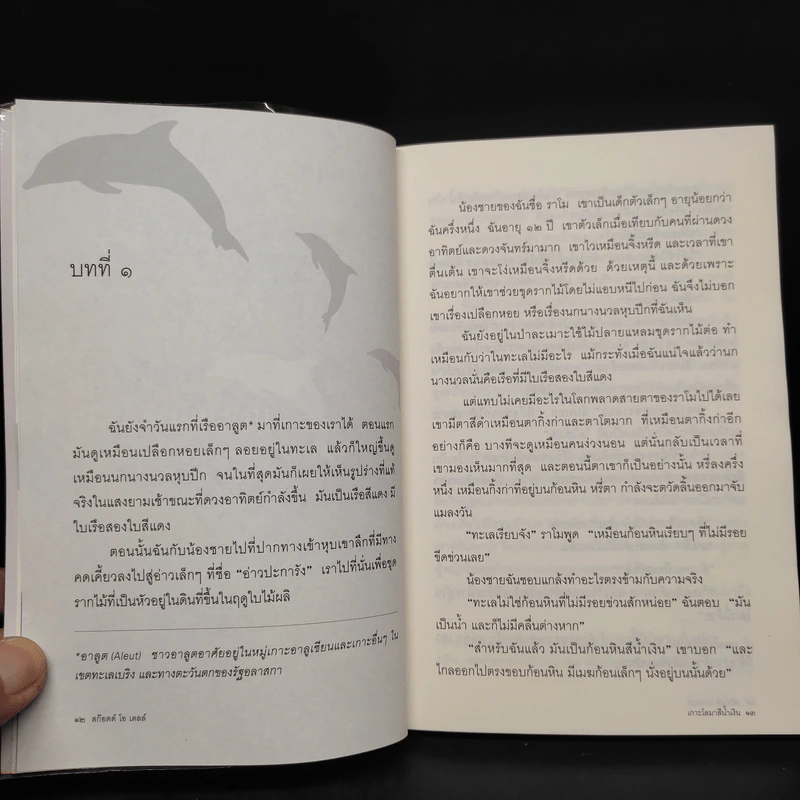 บทที่ ๑
ฉันยังจำวันแรกที่เรืออาลูต* มาที่เกาะของเราได้ ตอนแรก
มันดูเหมือนเปลือกหอยเล็กๆ ลอยอยู่ในทะเล แล้วก็ใหญ่ขึ้นดู
เหมือนนกนางนวลหุบปีก จนในที่สุดมันก็เผยให้เห็นรูปร่างที่แท้
จริงในแสงยามเช้าขณะที่ดวงอาทิตย์กำลังขึ้น มันเป็นเรือสีแดง มี
ใบเรือสองใบสีแดง
ตอนนั้นฉันกับน้องชายไปที่ปากทางเข้าหุบเขาลึกที่มีทาง
คดเคี้ยวลงไปสู่อ่าวเล็กๆ ที่ชื่อ “อ่าวปะการัง” เราไปที่นั่นเพื่อขุด
รากไม้ที่เป็นหัวอยู่ในดินที่ขึ้นในฤดูใบไม้ผลิ
*อาลูต (Aleut) ชาวอาลูตอาศัยอยู่ในหมู่เกาะอาลูเชียนและเกาะอื่นๆ ใน
เขตทะเลเบริง และทางตะวันตกของรัฐอลาสกา
๑๒ สก๊อตต์ โอ เดลล์
น้องชายของฉันชื่อ ราโม เขาเป็นเด็กตัวเล็กๆ อายุน้อยกว่า
ฉันครึ่งหนึ่ง ฉันอายุ ๑๒ ปี เขาตัวเล็กเมื่อเทียบกับคนที่ผ่านดวง
อาทิตย์และดวงจันทร์มามาก เขาไวเหมือนจิ้งหรีด และเวลาที่เขา
ตื่นเต้น เขาจะโง่เหมือนจิ้งหรีดด้วย ด้วยเหตุนี้ และด้วยเพราะ
ฉันอยากให้เขาช่วยขุดรากไม้โดยไม่แอบหนีไปก่อน ฉันจึงไม่บอก
เขาเรื่องเปลือกหอย หรือเรื่องนกนางนวลหุบปีกที่ฉันเห็น
ฉันยังอยู่ในป่าละเมาะใช้ไม้ปลายแหลมขุดรากไม้ต่อ ทำ
เหมือนกับว่าในทะเลไม่มีอะไร แม้กระทั่งเมื่อฉันแน่ใจแล้วว่านก
นางนวลนั่นคือเรือที่มีใบเรือสองใบสีแดง
แต่แทบไม่เคยมีอะไรในโลกพลาดสายตาของราโมไปได้เลย
เขามีตาสีดำเหมือนตากิ้งก่าและตาโตมาก ที่เหมือนตากิ้งก่าอีก
อย่างก็คือ บางทีจะดูเหมือนคนง่วงนอน แต่นั่นกลับเป็นเวลาที่
เขามองเห็นมากที่สุด และตอนนี้ตาเขาก็เป็นอย่างนั้น หรี่ลงครึ่ง
หนึ่ง เหมือนกิ้งก่าที่อยู่บนก้อนหิน หรี่ตา กำลังจะตวัดลิ้นออกมาจับ
แมลงวัน
“ทะเลเรียบจัง” ราโมพูด “เหมือนก้อนหินเรียบๆ ที่ไม่มีรอย
ขีดข่วนเลย”
น้องชายฉันชอบแกล้งทำอะไรตรงข้ามกับความจริง
“ทะเลไม่ใช่ก้อนหินที่ไม่มีรอยข่วนสักหน่อย” ฉันตอบ “มัน
เป็นน้ำ และก็ไม่มีคลื่นต่างหาก”
“สำหรับฉันแล้ว มันเป็นก้อนหินสีน้ำเงิน” เขาบอก “และ
ไกลออกไปตรงขอบก้อนหิน มีเมฆก้อนเล็กๆ นั่งอยู่บนนั้นด้วย”
เกาะโลมาสีน้ำเงิน ๑๓